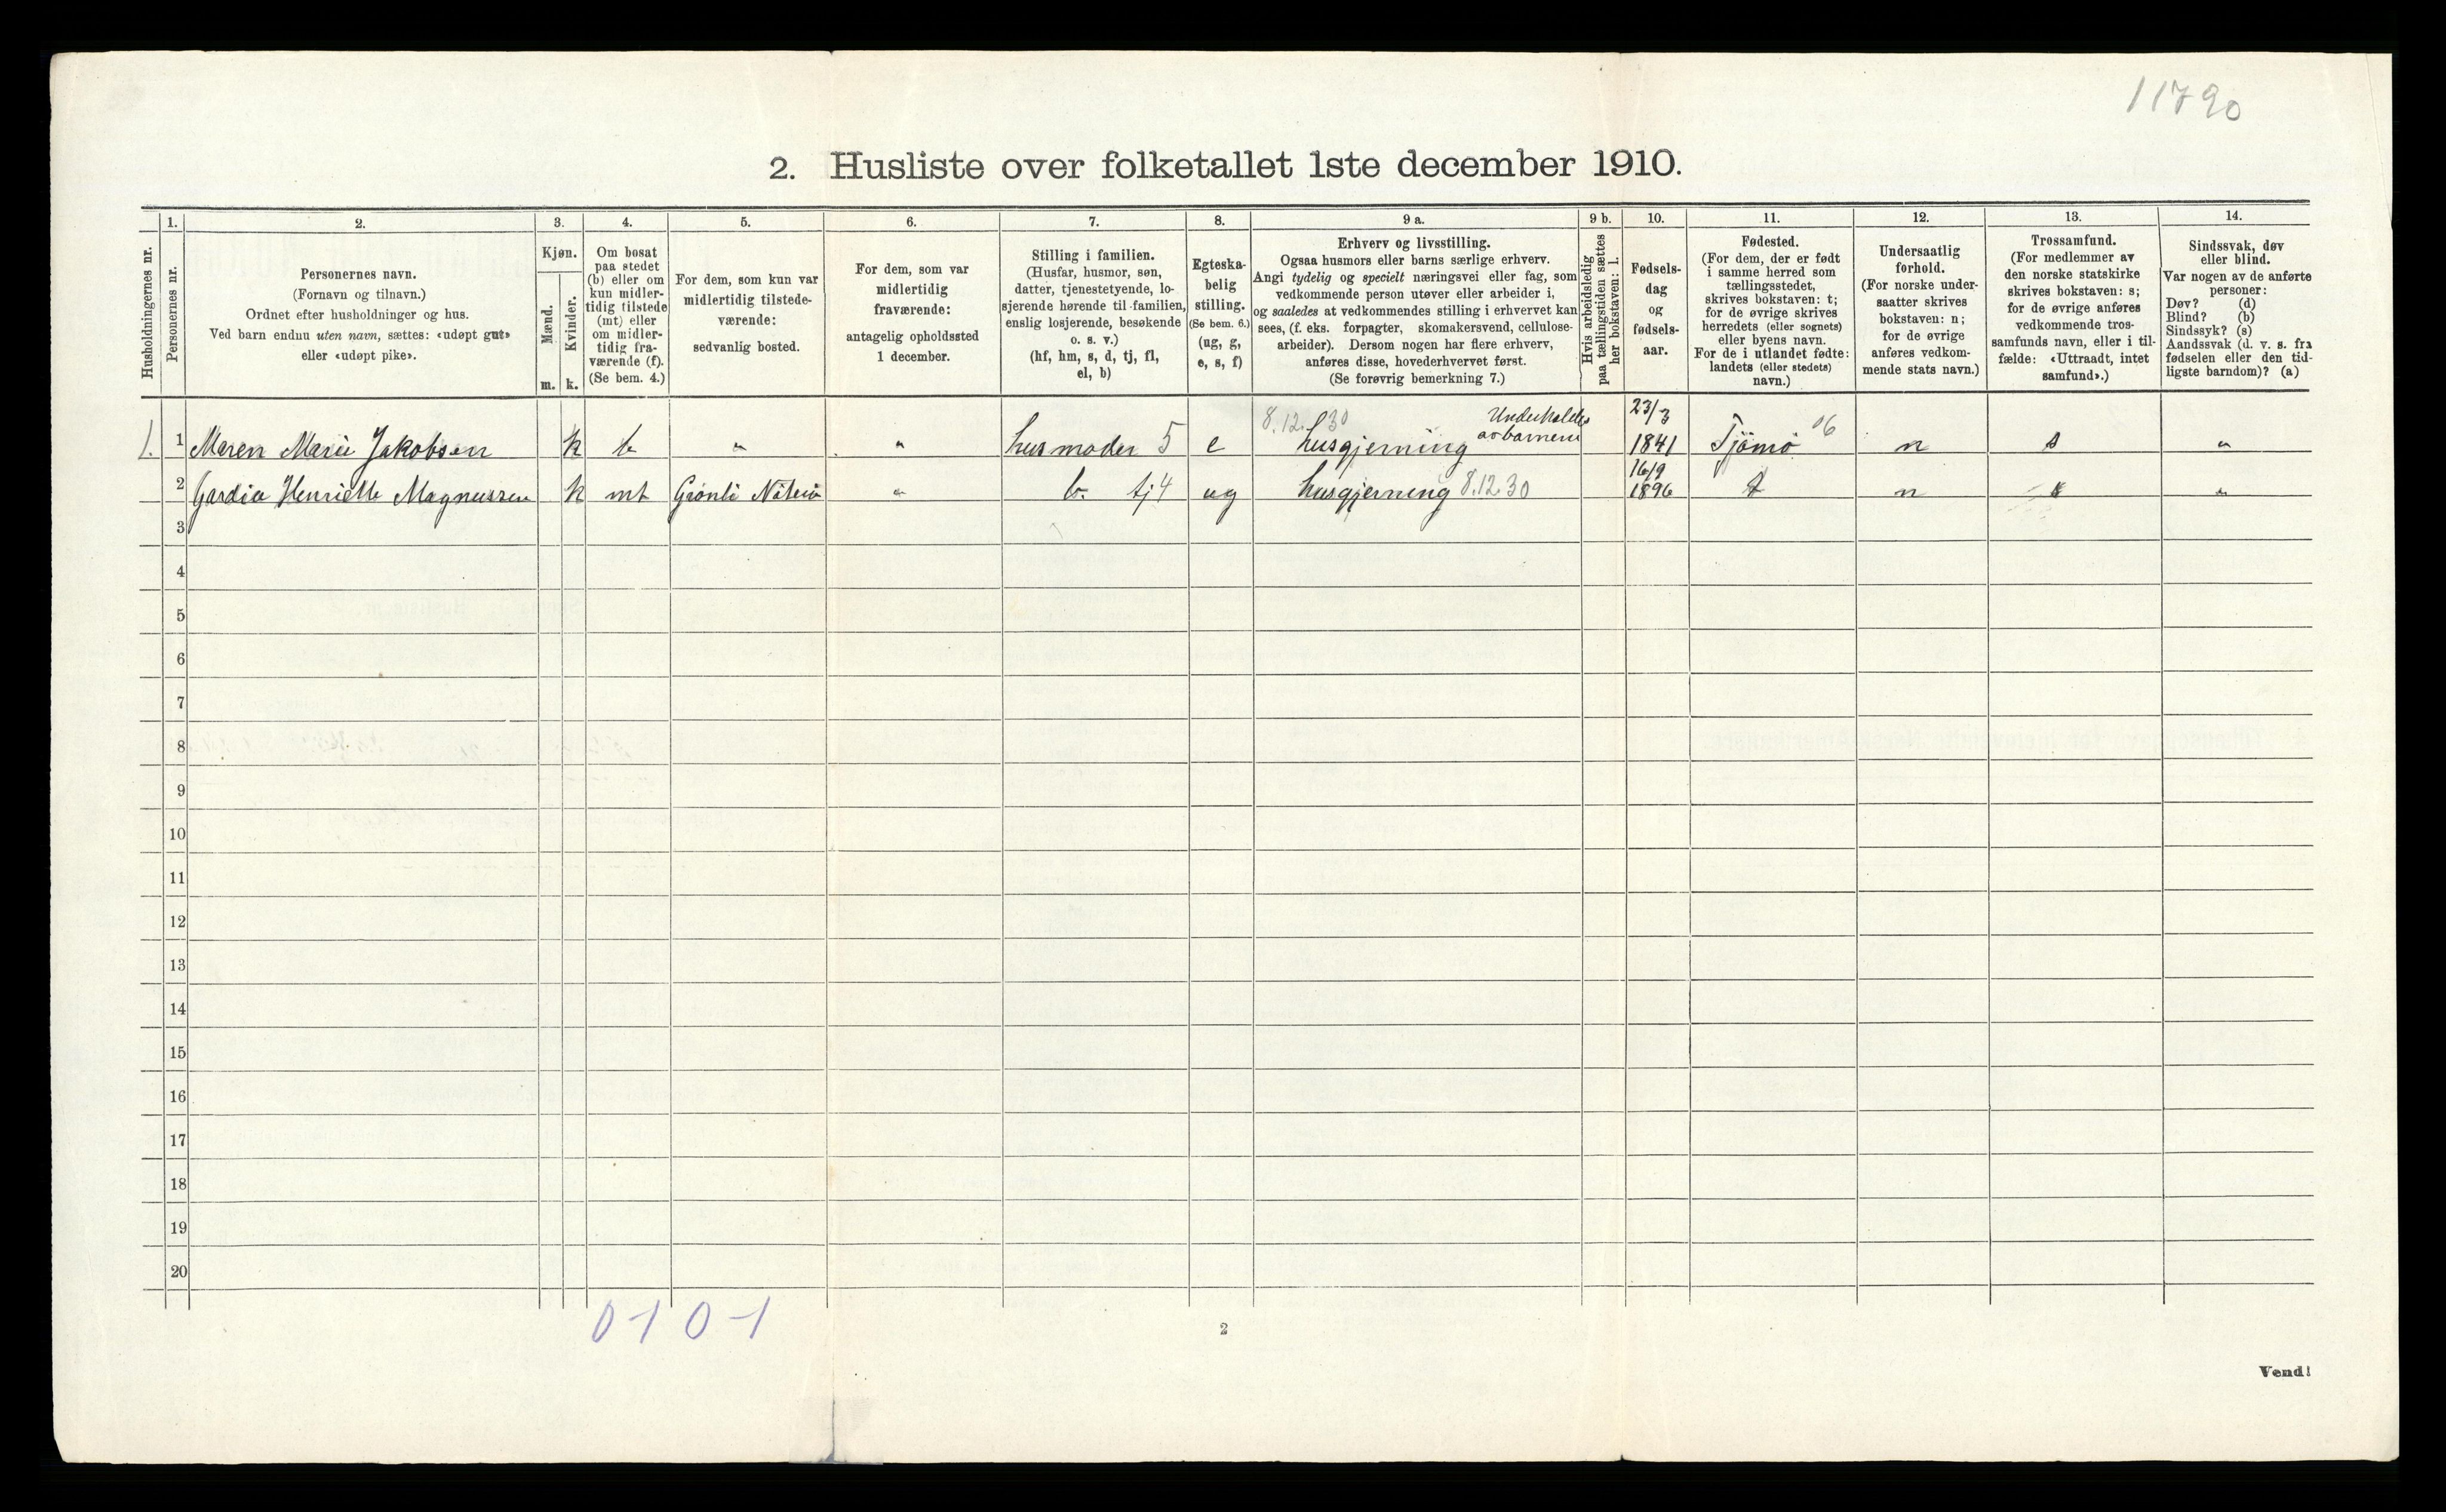 11790
2. Husliste over folketallet 1ste december 1910.
Husholdningernes nr.
1.
Personernes nr.
2.
Personernes navn.
(Fornavn og tilnavn.)
Ordnet efter husholdninger og hus.
Ved barn endnu uten navn, sættes: «udøpt gut»
eller «udøpt pike».
3.
Kjøn.
Mænd.
m.
Kvinder.
k.
4.
Om bosat
paa stedet
(b) eller om
kun midler-
tidig tilstede
(mt) eller
om midler-
tidig fra-
værende (f).
(Se bem. 4.)
5.
For dem, som kun var
midlertidig tilstede-
værende:
sedvanlig bosted.
6.
For dem, som var
midlertidig
fraværende:
antagelig opholdssted
1 december.
7.
Stilling i familien.
(Husfar, husmor, søn,
datter, tjenestetyende, lo-
sjerende hørende til familien,
enslig losjerende, besøkende
o. s. v.)
(hf, hm, s, d, tj, fl,
el, b)
8.
Egteska-
belig
stilling.
(Se bem. 6.)
(ug, g,
e, s, f)
9 a.
Erhverv og livsstilling.
Ogsaa husmors eller barns særlige erhverv.
Angi tydelig og specielt næringsvei eller fag, som
vedkommende person utøver eller arbeider i,
og saaledes at vedkommendes stilling i erhvervet kan
sees, (f. eks. forpagter, skomakersvend, cellulose-
arbeider). Dersom nogen har flere erhverv,
anføres disse, hovederhvervet først.
(Se forøvrig bemerkning 7.)
9 b.
Hvis arbeidsledig
paa tællingstiden sættes
her bokstaven: l.
10.
Fødsels-
dag
og
fødsels-
aar.
11.
Fødested.
(For dem, der er født
i samme herred som
tællingsstedet,
skrives bokstaven: t;
for de øvrige skrives
herredets (eller sognets)
eller byens navn.
For de i utlandet fødte:
landets (eller stedets)
navn.)
12.
Undersaatlig
forhold.
(For norske under-
saatter skrives
bokstaven: n;
for de øvrige
anføres vedkom-
mende stats navn.)
13.
Trossamfund.
(For medlemmer av
den norske statskirke
skrives bokstaven: s;
for de øvrige anføres
vedkommende tros-
samfunds navn, eller i til-
fælde: «Uttraadt, intet
samfund».)
14.
Sindssvak, døv
eller blind.
Var nogen av de anførte
personer:
Døv? (d)
Blind? (b)
Sindssyk? (s)
Aandssvak (d. v. s. fra
fødselen eller den tid-
ligste barndom)? (a)
1. 1 Maren Marie Jakobsen k b " " husmoder 5 e 8.12.30 husgjerning Underholdes av barnene 23/3 1841 Tjømø 06 n s "
2 Gardia Henriette Magnussen k mt Grønli Nøterø " b. tj 4 ug husgjerning 8.12.30 16/9 1896 t n s "
3
4
5
6
7
8
9
10
11
12
13
14
15
16
17
18
19
20
0-1 0-1
2
Vend!